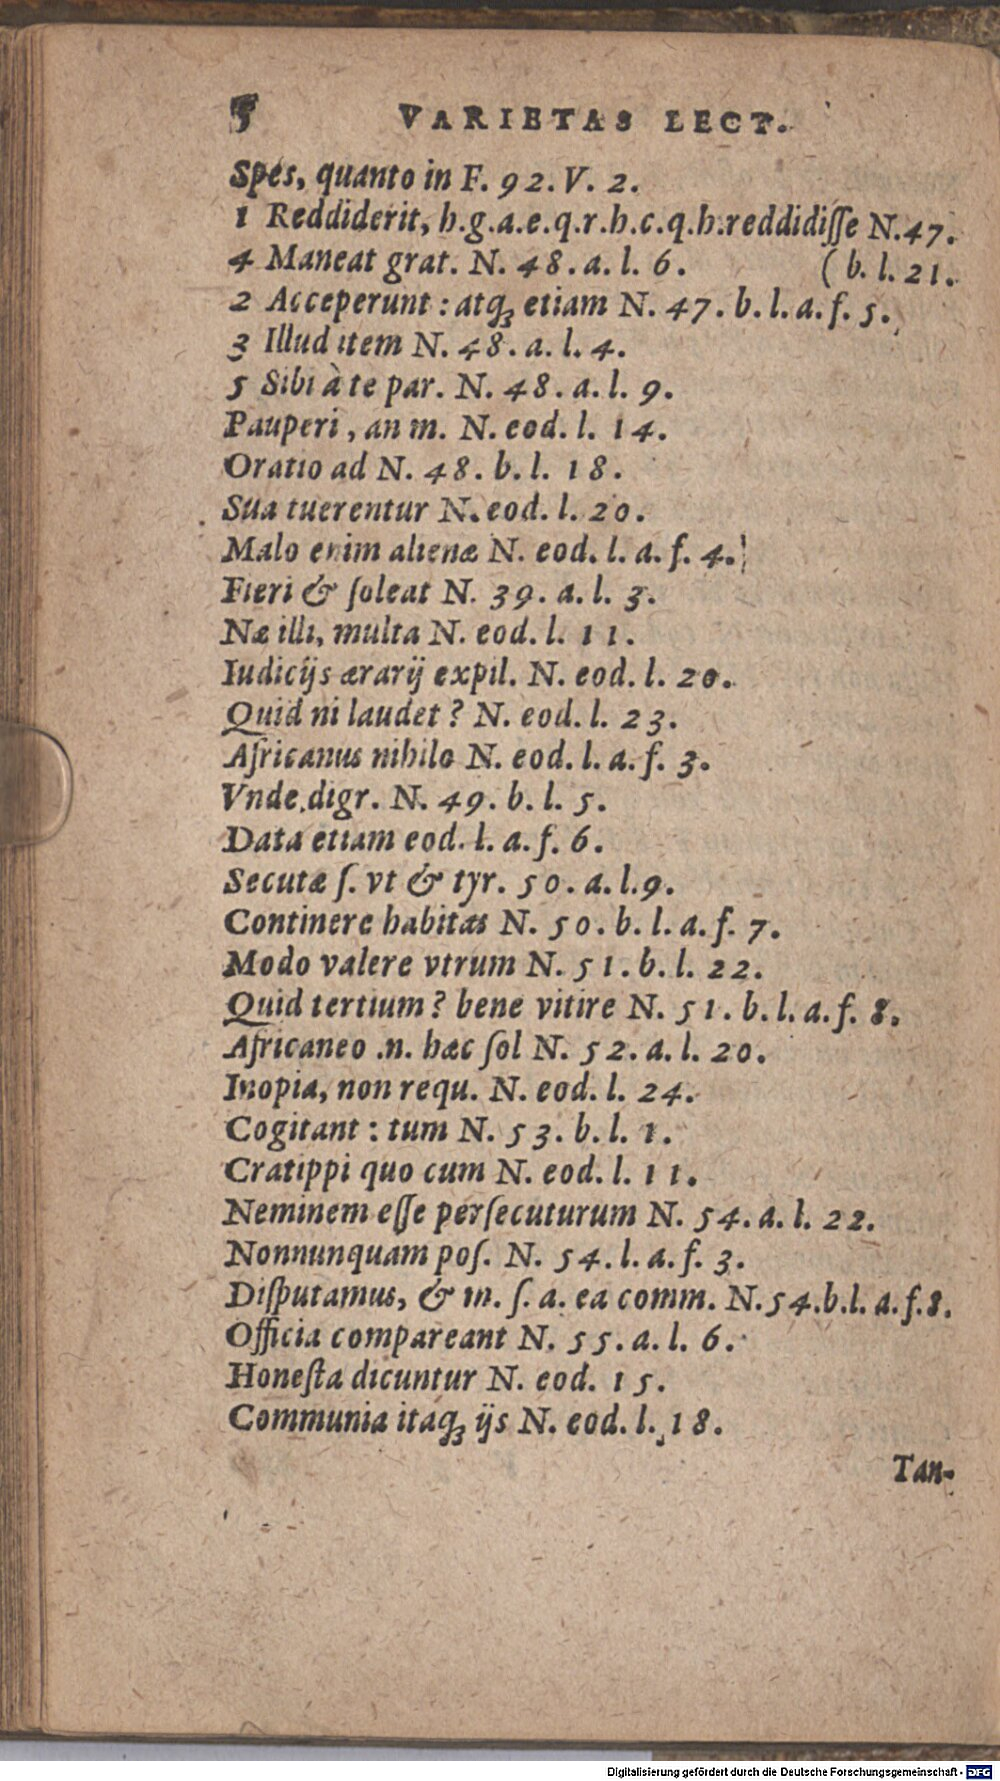 5 VARIETAS LECT.
Spes, quanto in F. 92. V. 2.
1 Reddiderit, h.g.a.e.q.r.h.c.q.h.reddidiſſe N.47.
4 Maneat grat. N. 48. a. l. 6. ( b. l. 21.
2 Acceperunt : atqꝫ etiam N. 47. b. l. a. f. 5.
3 Illud item N. 48. a. l. 4.
5 Sibi à te par. N. 48. a. l. 9.
Pauperi, an m. N. eod. l. 14.
Oratio ad N. 48. b. l. 18.
Sua tuerentur N. eod. l. 20.
Malo enim alienæ N. eod. l. a. f. 4.
Fieri & ſoleat N. 39. a. l. 3.
Næ illi, multa N. eod. l. 11.
Iudicijs ærarij expil. N. eod. l. 20.
Quid ni laudet ? N. eod. l. 23.
Africanus nihilo N. eod. l. a. f. 3.
Vnde digr. N. 49. b. l. 5.
Data etiam eod. l. a. f. 6.
Secutæ ſ. vt & tyr. 50. a. l.9.
Continere habitas N. 50. b. l. a. f. 7.
Modo valere vtrum N. 51. b. l. 22.
Quid tertium ? bene vitire N. 51. b. l. a. f. 8.
Africaneo .n. hæc ſol N. 52. a. l. 20.
Inopia, non requ. N. eod. l. 24.
Cogitant : tum N. 53. b. l. 1.
Cratippi quo cum N. eod. l. 11.
Neminem eſſe perſecuturum N. 54. a. l. 22.
Nonnunquam poſ. N. 54. l. a. f. 3.
Diſputamus, & m. ſ. a. ea comm. N. 54.b.l. a.f.8.
Officia compareant N. 55. a. l. 6.
Honeſta dicuntur N. eod. 15.
Communia itaqꝫ ijs N. eod. l. 18.
Tan-
Digitalisierung gefördert durch die Deutsche Forschungsgemeinschaft - DFG